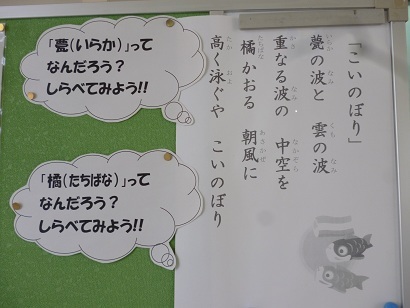 「こいのぼり」
甍の波と 雲の波
重なる波の 中空を
橘かおる 朝風に
高く泳ぐや こいのぼり
「甍(いらか)」って
なんだろう?
しらべてみよう!!
「橘(たちばな)」って
なんだろう?
しらべてみよう!!